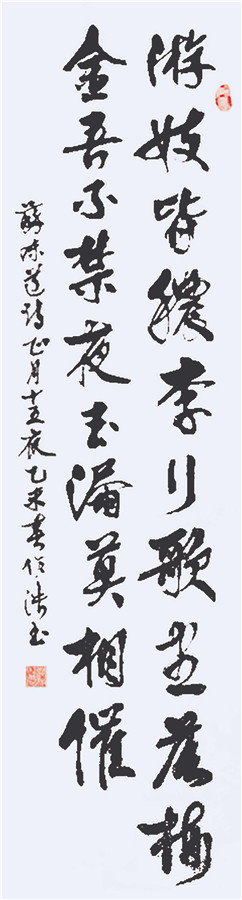 游妓皆穠李行歌尽落梅
金吾不禁夜玉漏莫相催
蘇味道詩正月十五夜乙未